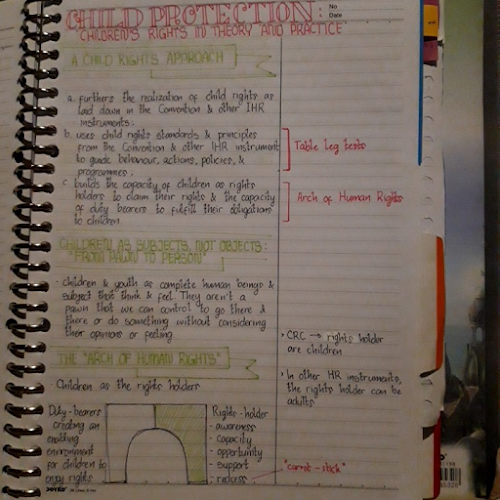 CHILD PROTECTION:
No
Date
CHILDREN'S RIGHTS IN THEORY AND PRACTICE
A CHILD RIGHTS APPROACH
a. furthers the realization of child rights as
laid down in the Convention & other IHR
instruments;
b. uses child rights standards & principles
from the Convention & other IHR instrument
to guide behaviour, actions, policies, &
programmes;
c. builds the capacity of children as rights
holders to claim their rights & the capacity
of duty bearers to fulfill their obligations
to children.
Table leg tests
Arch of Human Rights
CHILDREN AS SUBJECTS, NOT OBJECTS:
"FROM PAWN TO PERSON"
children & youth as complete human beings &
subject that think & feel. They aren't a
pawn that we can control to go there &
there or do something without considering
their opinions or feeling
THE "ARCH OF HUMAN RIGHTS"
Children as the rights holders
• CRC → rights holder
are children
• In other HR instruments,
the rights holder can be
adults
Duty-bearers
creating an
enabling
environment
for children to
enjoy rights
Rights-holder
- awareness
- capacity
- opportunity
- support
- redress
"carrot-stick"